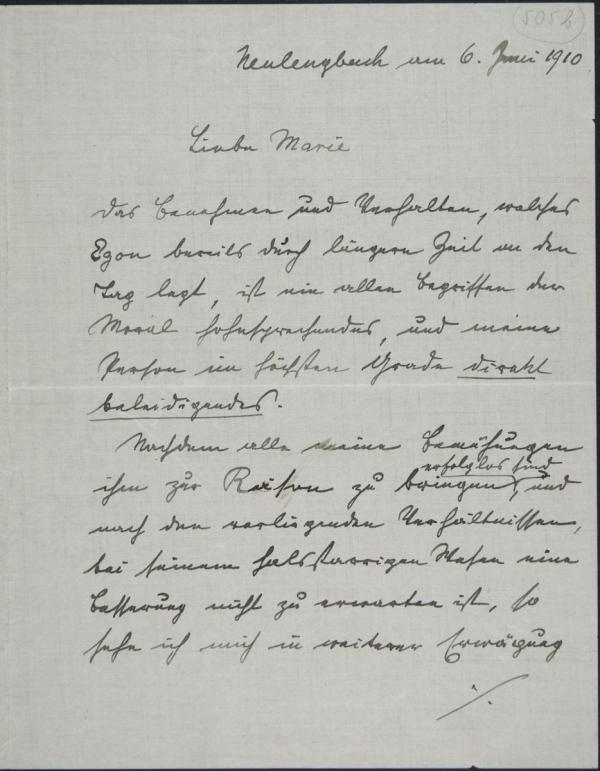 5052
Neulengbach am 6. Juni 1910
Liebe Marie
Das Benehmen und Verhalten, welches
Egon bereits durch längere Zeit an den
Tag legt, ist ein allen Begriffen der
Moral hohnsprechendes, und meine
Person im höchsten Grade direkt
beleidigendes.
Nachdem alle meine Bemühungen
erfolglos sind
ihn zur Räson zu bringen, und
nach den vorliegenden Verhältnissen,
bei seinem halsstarrigen Wesen eine
Besserung nicht zu erwarten ist, so
sehe ich mich in weiterer Erwägung
./.